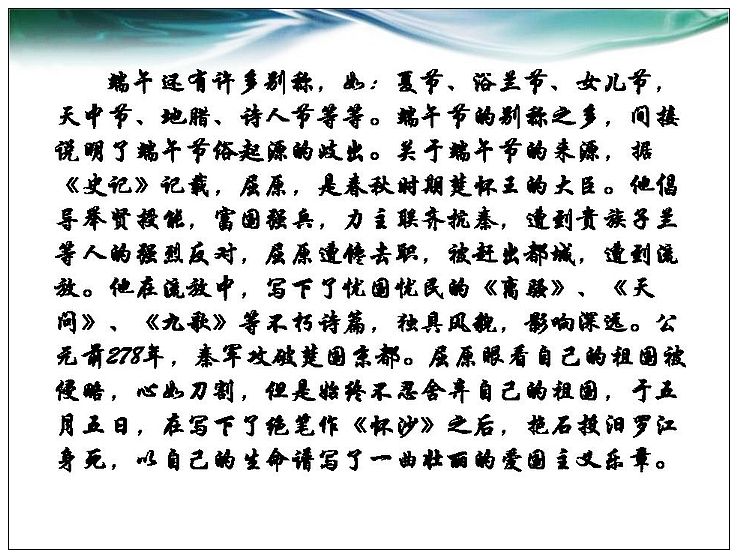 端午还有许多别称，如：夏节、浴兰节、女儿节，
天中节、地腊、诗人节等等。端午节的别称之多，间接
说明了端午节俗起源的歧出。关于端午节的来源，据
《史记》记载，屈原，是春秋时期楚怀王的大臣。他倡
导举贤授能，富国强兵，力主联齐抗秦，遭到贵族子兰
等人的强烈反对，屈原遭馋去职，被赶出都城，遭到流
放。他在流放中，写下了忧国忧民的《离骚》、《天
问》、《九歌》等不朽诗篇，独具风貌，影响深远。公
元前278年，秦军攻破楚国京都。屈原眼看自己的祖国被
侵略，心如刀割，但是始终不忍舍弃自己的祖国，于五
月五日，在写下了绝笔作《怀沙》之后，抱石投汨罗江
身死，以自己的生命谱写了一曲壮丽的爱国主义乐章。